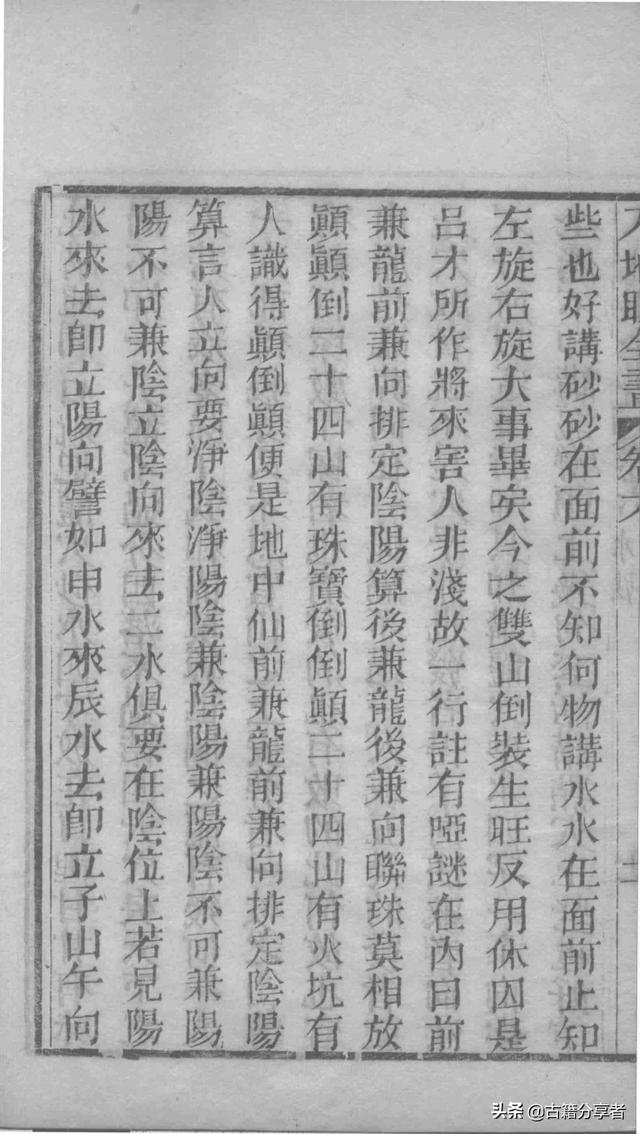 地眼全書 卷六
二
些也好講砂砂在面前不知何物講水水在面前止知
左旋右旋大事畢矣今之雙山倒裝生旺反用休囚是
呂才所作將來害人非淺故一行註有啞謎在內曰前
兼龍前兼向排定陰陽算後兼龍後兼向聯珠莫相放
顛顛倒二十四山有珠寶倒倒顛二十四山有火坑有
人識得顛倒顛便是地中仙前兼龍前兼向排定陰陽
算言人立向要淨陰淨陽陰兼陰陽兼陽陰不可兼陽
陽不可兼陰立陰向來去二水俱要在陰位上若見陽
水來去卽立陽向譬如申水來辰水去卽立子山午向
头条@古籍分享者